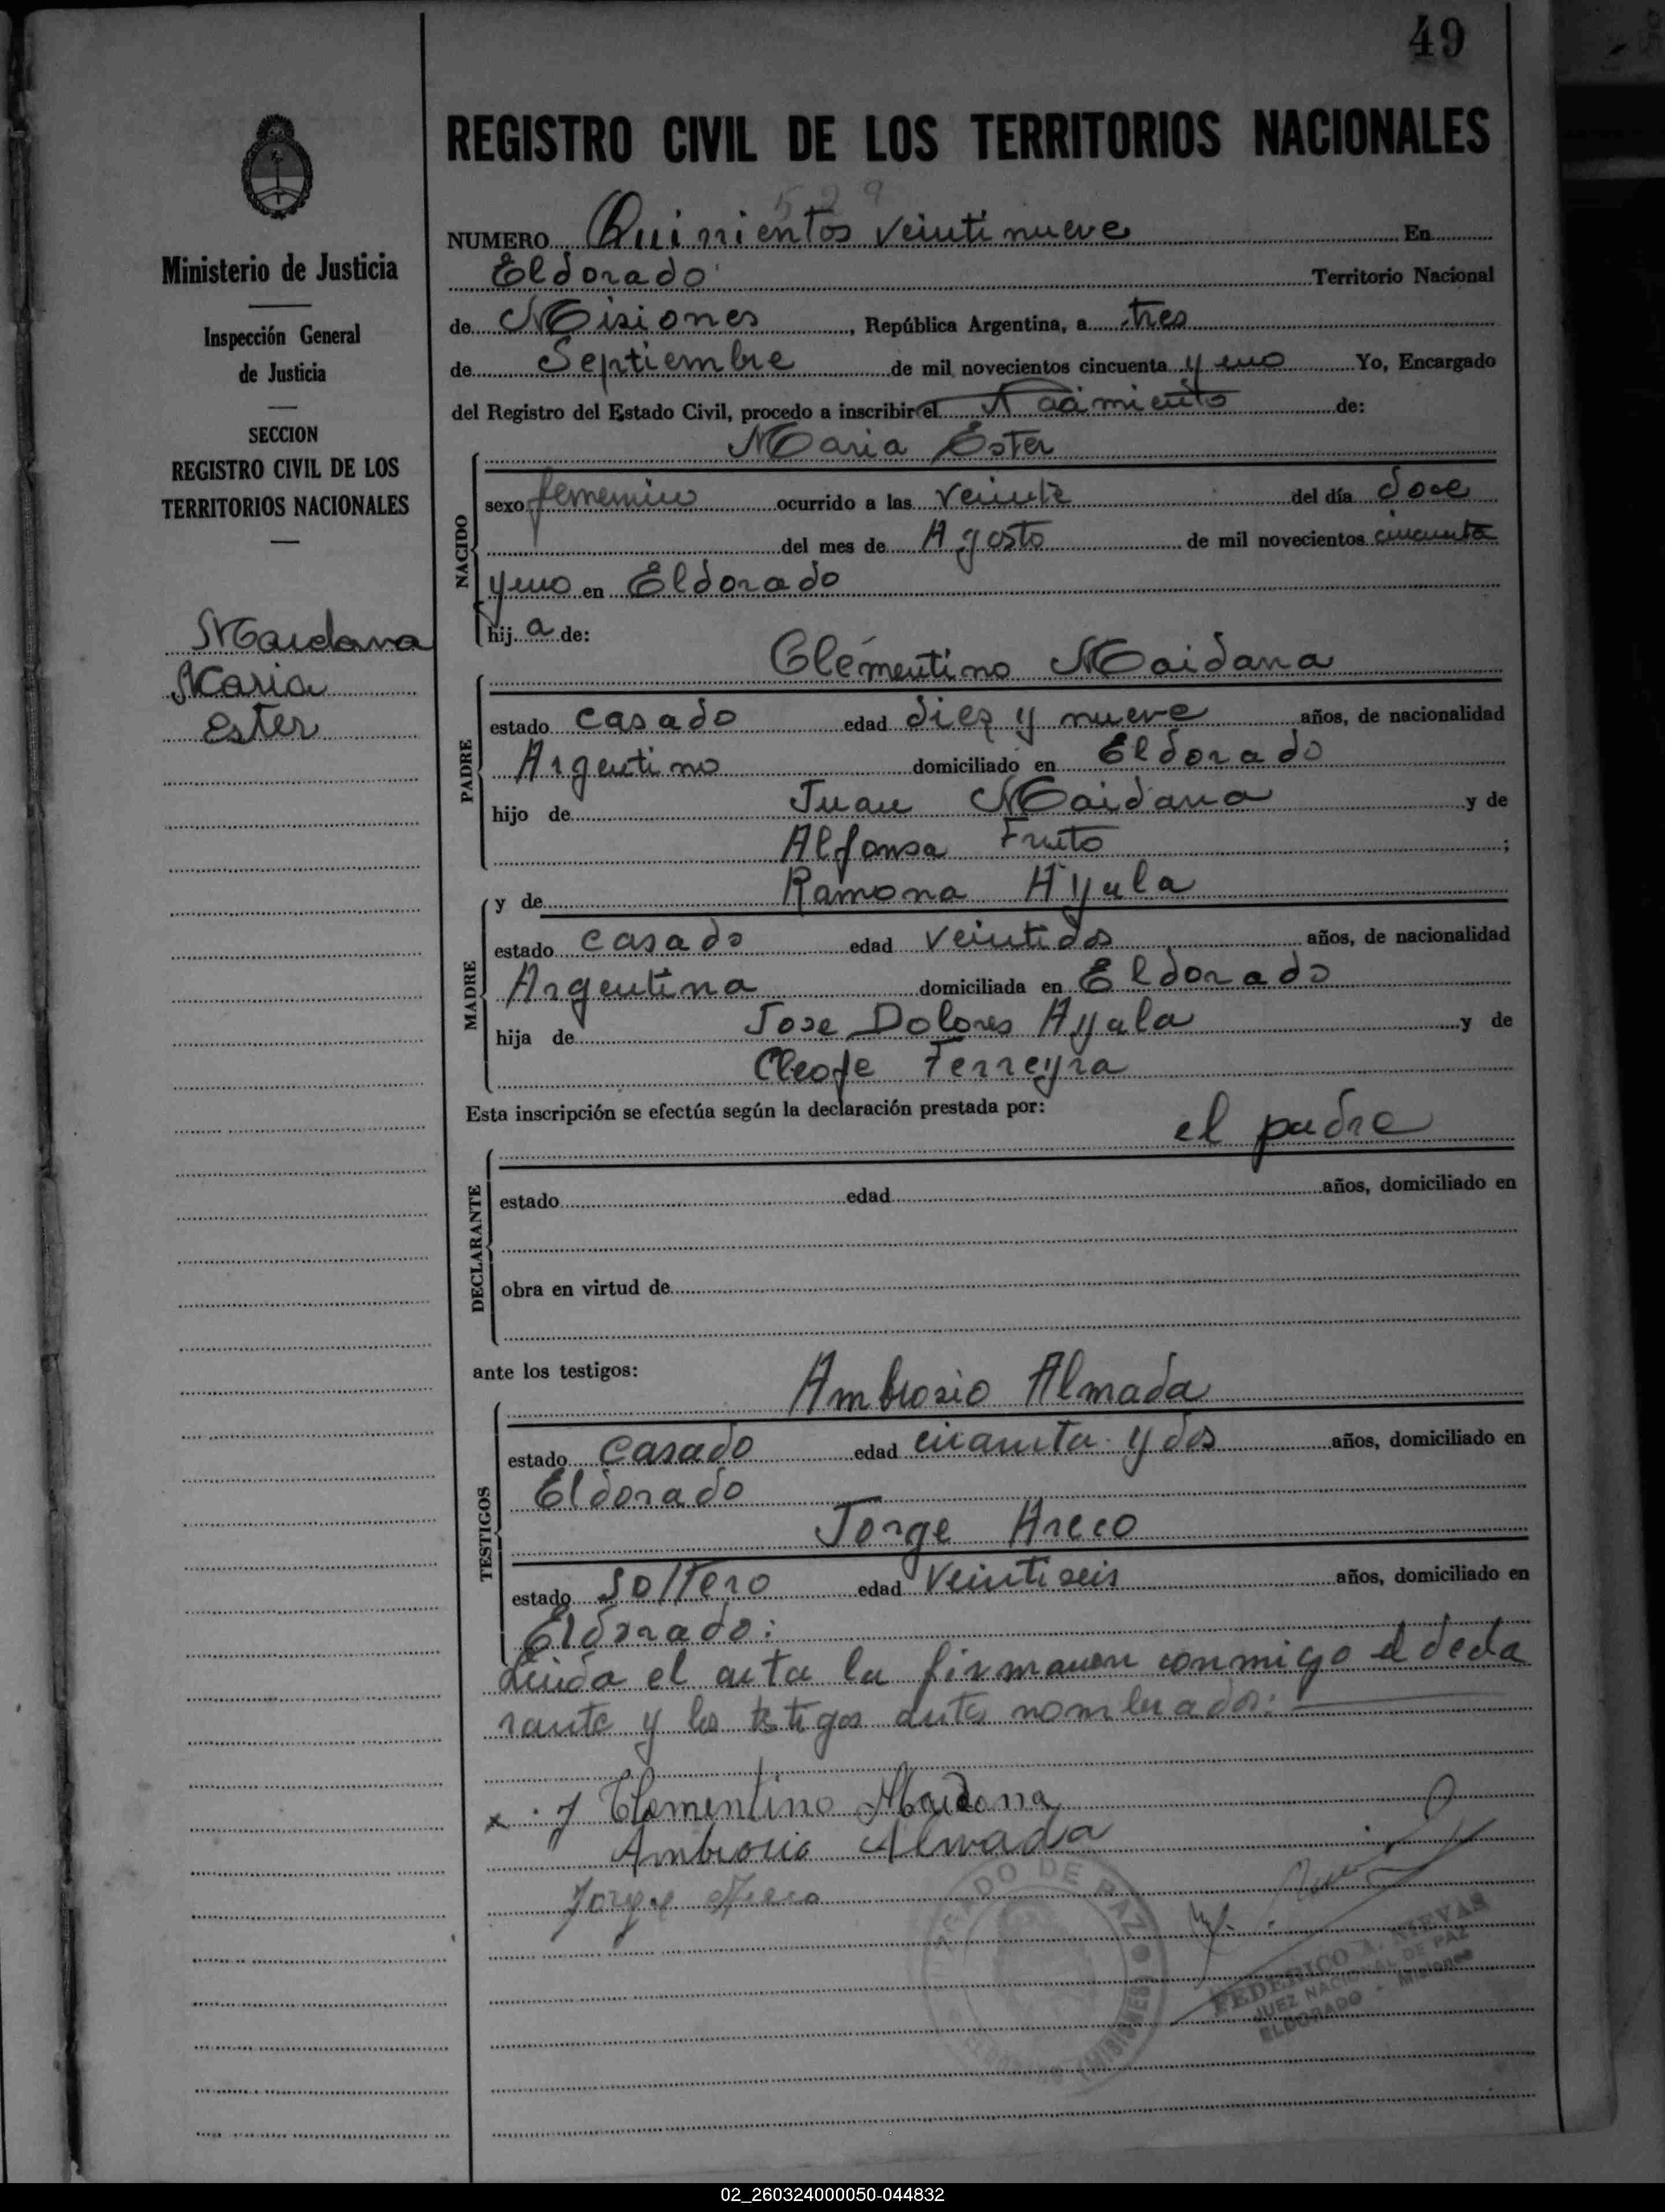 49
REGISTRO CIVIL DE LOS TERRITORIOS NACIONALES
529
NUMERO Quinientos veinti nueve En
Eldorado Territorio Nacional
de Misiones, República Argentina, a tres
de Septiembre de mil novecientos cincuenta y uno Yo, Encargado
del Registro del Estado Civil, procedo a inscribir el Nacimiento de:
Ministerio de Justicia
Inspección General
de Justicia
SECCION
REGISTRO CIVIL DE LOS
TERRITORIOS NACIONALES
Maidana
Maria
Ester
NACIDO
Maria Ester
sexo femenino ocurrido a las veinte del día doce
del mes de Agosto de mil novecientos cincuenta
y uno en Eldorado
hija de:
PADRE
Clementino Maidana
estado casado edad diez y nueve años, de nacionalidad
Argentino domiciliado en Eldorado
hijo de Juan Maidana y de
Alfonsa Fruto;
MADRE
y de Ramona Ayala
estado casado edad veintidos años, de nacionalidad
Argentina domiciliada en Eldorado
hija de Jose Dolores Ayala y de
Cleofe Ferreyra
Esta inscripción se efectúa según la declaración prestada por:
el padre
DECLARANTE
estado edad años, domiciliado en
obra en virtud de
ante los testigos:
TESTIGOS
Ambrosio Almada
estado casado edad cuarenta y dos años, domiciliado en
Eldorado
Jorge Areco
estado soltero edad veintiseis años, domiciliado en
Eldorado:
Leida el acta la firmaron conmigo el decla
rante y los testigos antes nombrados:
x Clementino Maidana
Ambrosio Almada
Jorge Areco
JUZGADO DE PAZ
MISIONES
FEDERICO A. NIEVAS
JUEZ NACIONAL DE PAZ
ELDORADO - Misiones
02_260324000050-044832